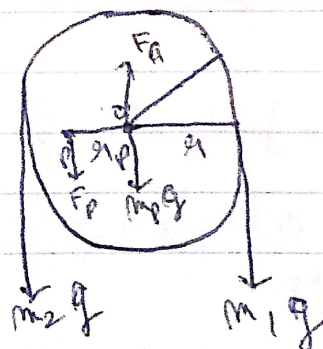 F_A
O
P r_P r
F_P m_P g
m_2 g m_1 g